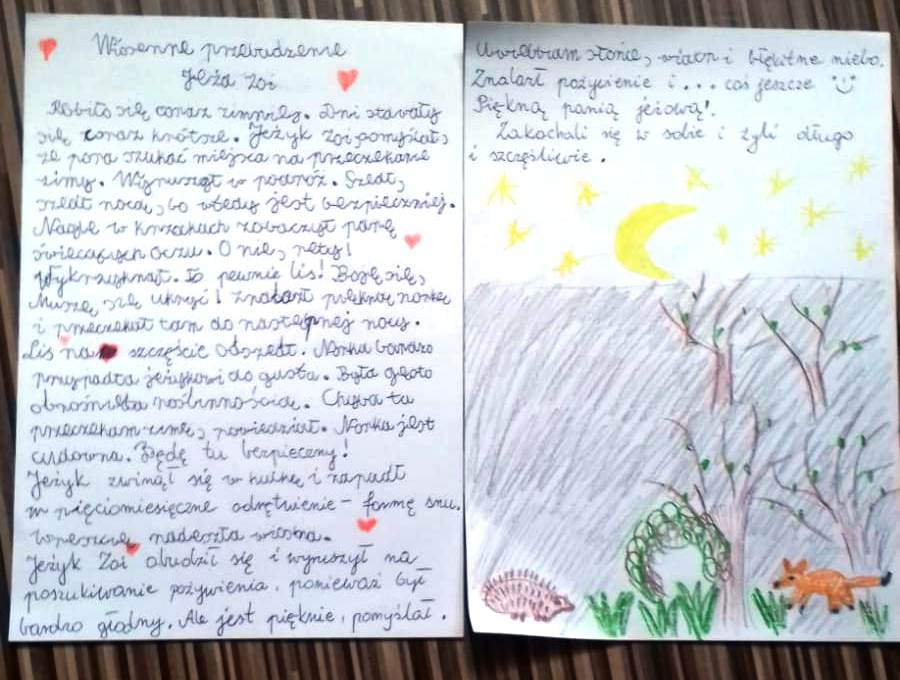 Wiosenne przebudzenie
Jeża Zoi
Robiło się coraz zimniej. Dni stawały
się coraz krótsze. Jeżyk Zoi pomyślał,
że pora szukać miejsca na przeczekanie
zimy. Wyruszył w podróż. Szedł,
szedł nocą, bo wtedy jest bezpieczniej.
Nagle w krzakach zobaczył parę
świecących oczu. O nie, rety!
Wykrzyknął. To pewnie lis! Boję się,
Muszę się ukryć! Znalazł piękną norkę
i przeczekał tam do następnej nocy.
Lis na szczęście odszedł. Norka bardzo
przypadła jeżykowi do gustu. Była gęsto
obrośnięta roślinnością. Chyba tu
przeczekam zimę, powiedział. Norka jest
cudowna. Będę tu bezpieczny!
Jeżyk zwinął się w kulkę i zapadł
w pięciomiesięczne odrętwienie - formę snu.
Wreszcie nadeszła wiosna.
Jeżyk Zoi obudził się i wyruszył na
poszukiwanie pożywienia, ponieważ był
bardzo głodny. Ale jest pięknie, pomyślał.
Uwielbiam słońce, wiatr i błękitne niebo.
Znalazł pożywienie i... coś jeszcze
Piękną panią jeżową!
Zakochali się w sobie i żyli długo
i szczęśliwie.